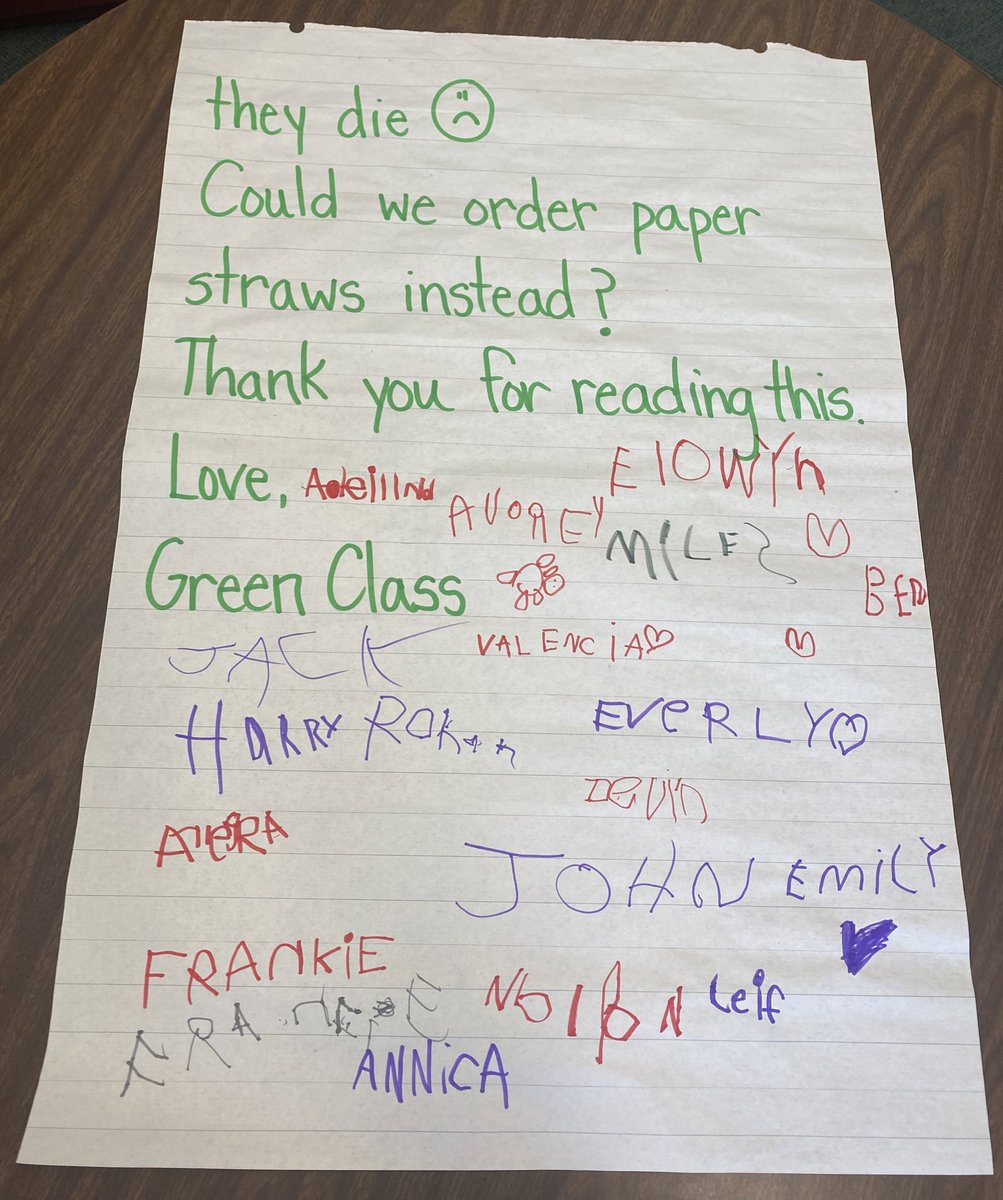 they die
Could we order paper
straws instead?
Thank you for reading this.
Love,
ElOWYn
AUOREY
MILES
Green Class
BEN
VALENCiA
JACK
HARRY
EVERLY
DEVIN
JOHN
EmiLY
FRANKiE
Leif
ANNiCA